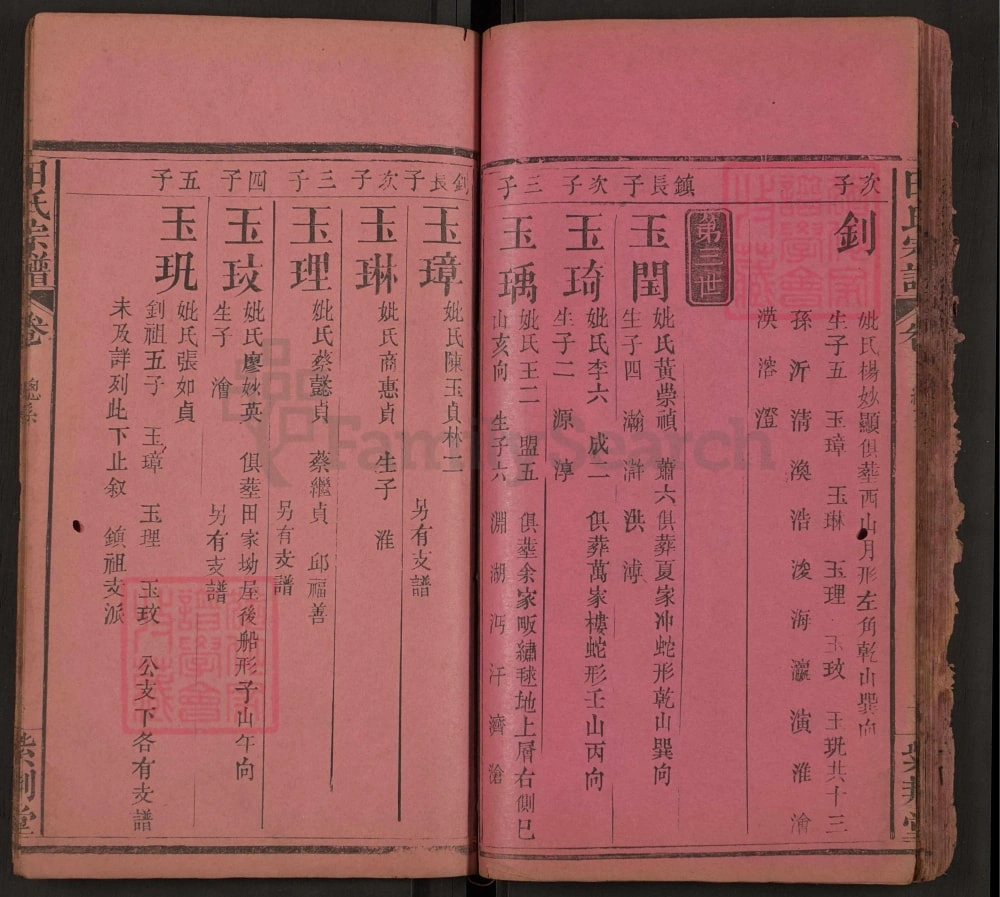 次子
釗
妣氏楊妙顯俱葬西山月形左角乾山巽向
生子五 玉璋 玉琳 玉理 玉玫 玉玧共十三
孫沂清渙浩浚海瀛演淮澮
漠溶澄
第三世
鎮長子
玉閏
妣氏黃崇禎 蕭六俱葬夏家冲蛇形乾山巽向
生子四 瀚 滸 洪 溥
次子
玉琦
妣氏李六 成二 俱葬萬家樓蛇形壬山丙向
生子二 源 淳
三子
玉瑀
妣氏王二 盟五 俱葬余家畈繡毬地上層右側巳
山亥向 生子六 淵 湖 沔 汗 濟 滄
釗長子
玉璋
妣氏陳玉貞林二 另有支譜
次子
玉琳
妣氏商惠貞 生子 淮
三子
玉理
妣氏蔡懿貞 蔡繼貞 邱福善
另有支譜
四子
玉玫
妣氏廖妙英 俱葬田家坳屋後船形子山午向
生子 澮 另有支譜
五子
玉玧
妣氏張如貞
釗祖五子 玉璋 玉理 玉玫 公支下各有支譜
未及詳列此下止叙 鎮祖支派
田氏宗譜 卷 總集 紫荆堂
FamilySearch